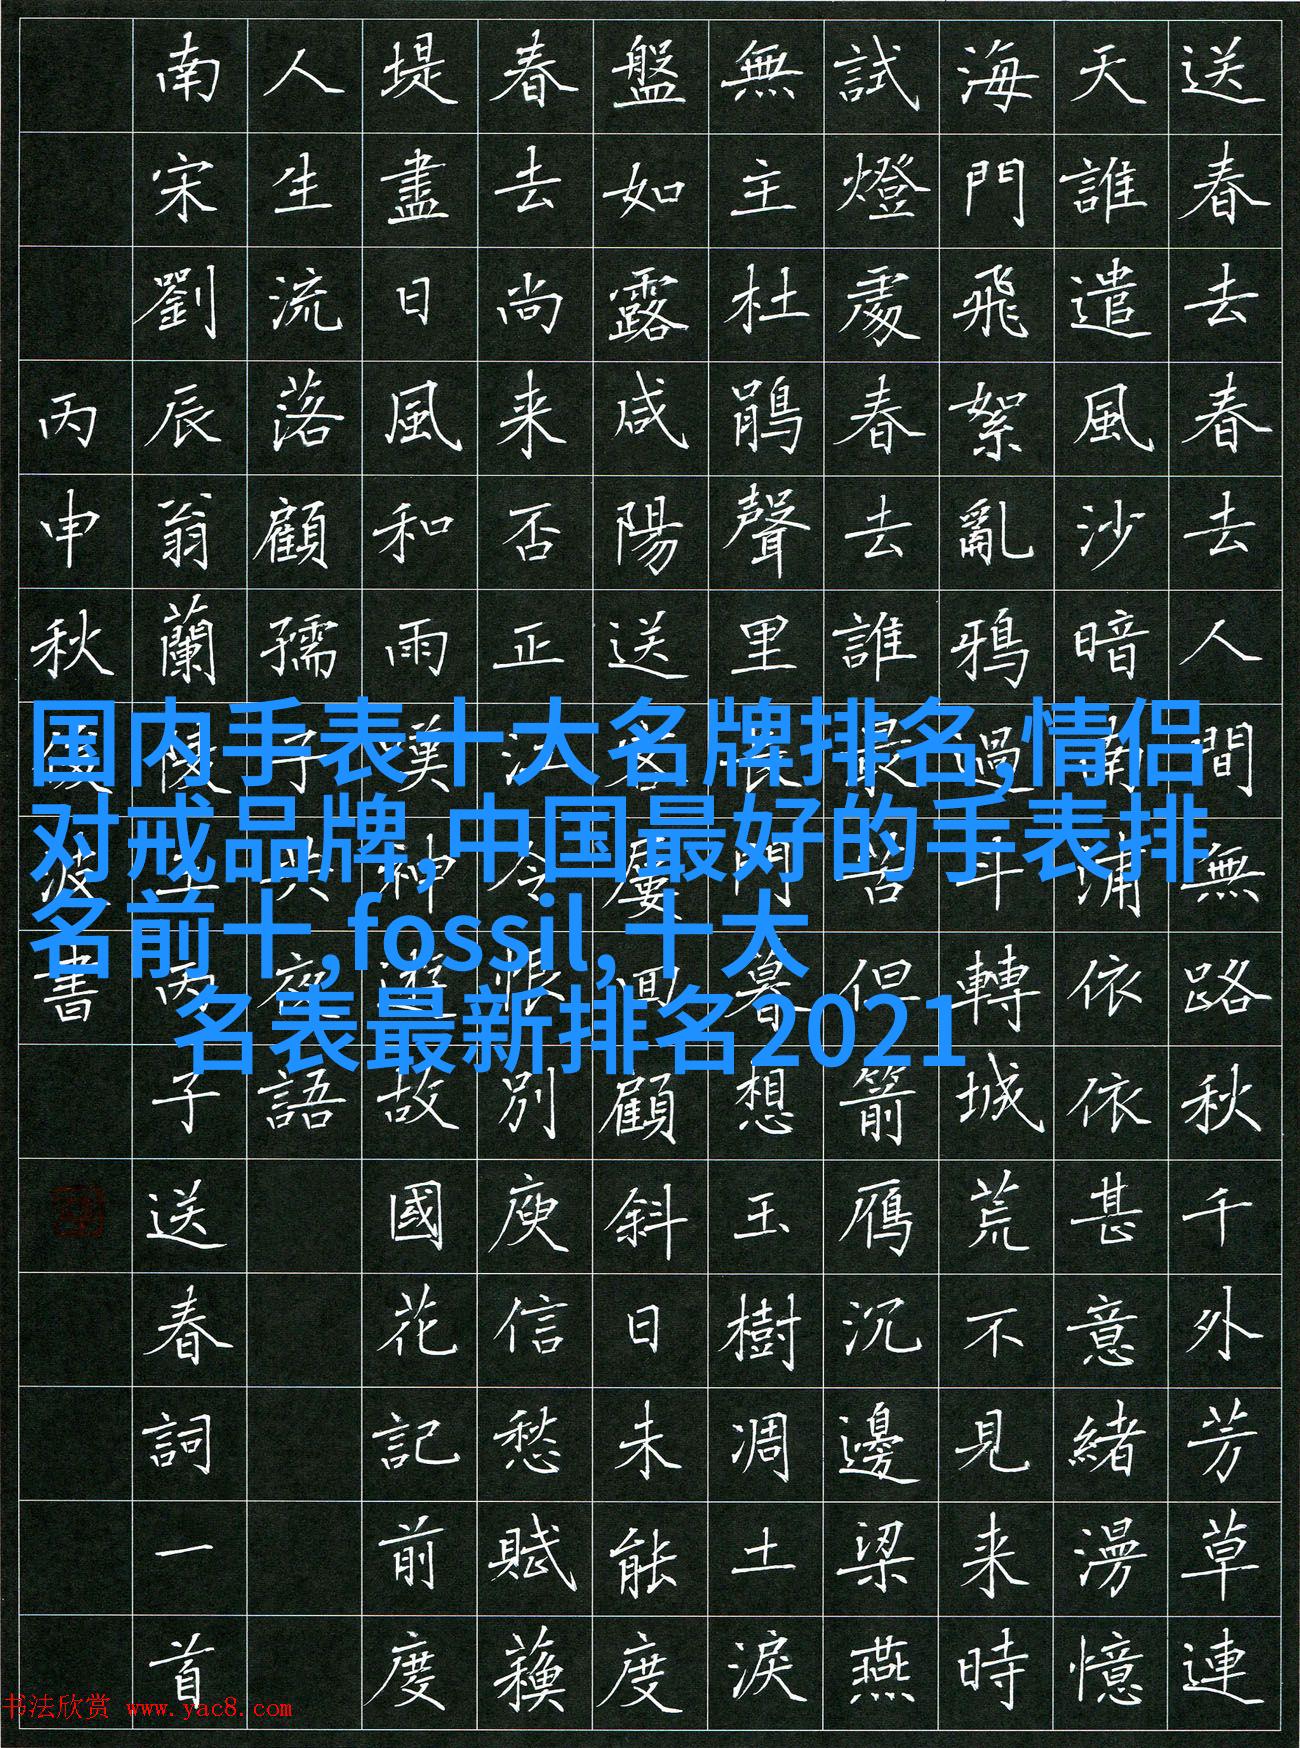 送春去春去人間無路秋千外芳草連
天誰遣風沙暗南浦依依甚意緒漫憶
海門飛絮亂鴉過斗轉城荒不見来時
試燈處春去誰最苦但箭雁沉邊梁燕
無主杜鵑聲里長門暮想玉樹凋土淚
盤如露咸陽送客屢回顧斜日未能度
春去尚来否正江令恨別庾信愁賦蘇
堤盡日風和雨嘆神遊故國花記前度
人生流落顧孺子共夜語
南宋劉辰翁蘭陵王丙子送春詞一首
丙申秋波書
国内手表十大名牌排名,情侣
对戒品牌,中国最好的手表排
名前十,fossil,十大
名表最新排名2021
书法欣赏 www.yac8.com